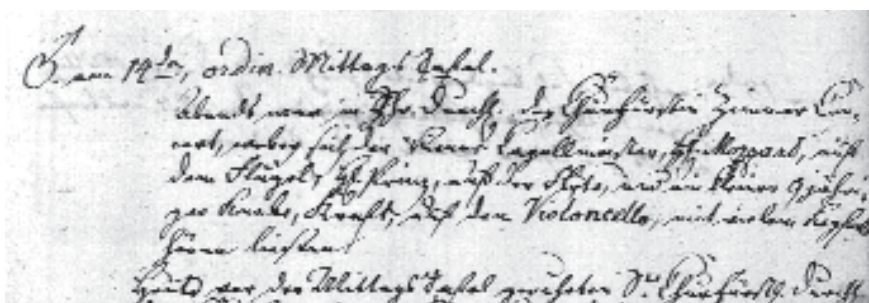 ♂ am 14ten, ordin. Mittags Tafel.
Abends war in Ihr. Durchl. der Churfürstin Zimmer Con-
cert, wobey sich der Kapellmeister, H: Mozard, auf
dem Flügel, H: Prinz, auf der Flöte, und ein kleiner 9 jähri-
ger Knabe, Kraft, auf dem Violoncello, mit vielem
hören liessen.
Heute vor der Mittags Tafel geruheten Se Churfürstl. Durchl.